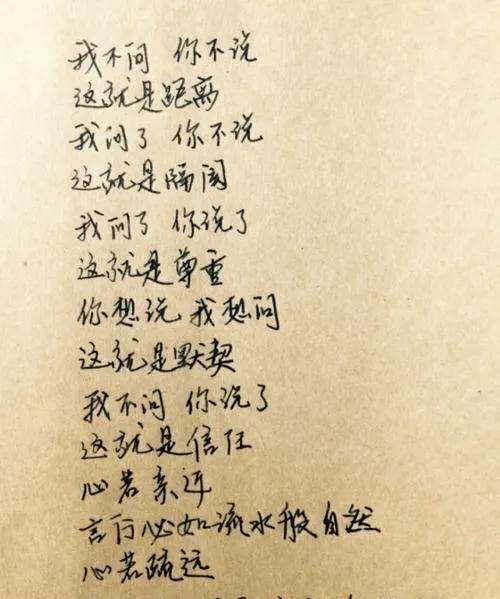 我不问 你不说
这就是距离
我问了 你不说
这就是隔阂
我问了 你说了
这就是尊重
你想说 我想问
这就是默契
我不问 你说了
这就是信任
心若亲近
言行必如流水般自然
心若疏远